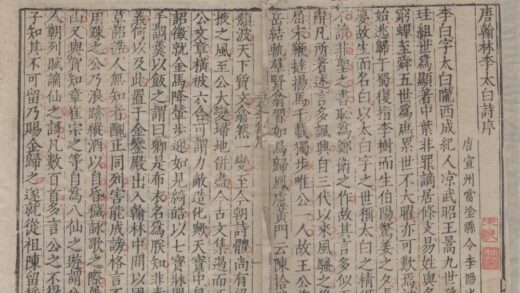 唐翰林李太白詩序
唐宣州當塗縣令李陽
李白字太白隴西成紀人凉武昭王暠九世
珪組世爲顯著中葉非罪謫居條支易姓與
窮蟬至舜五世爲庶累世不大曜亦可歎焉
始逃歸于蜀復指李樹而生伯陽驚姜之夕長
夢故生而名白以太白字之世稱太白之精
讀非聖之書恥爲鄭衛之作故其言多似
辭凡所著述言多諷興自三代以來風騷之
屈宋鞭撻揚馬千載獨步唯公一人故王公
岳結軌羣賢翕習如鳥歸鳳盧黃門云陳拾
頹波天下質文翕然一變至今朝詩體尚有
掖之風至公大變掃地併盡今古文集遏而
公文章橫被六合可謂力敵造化歟天寶
詔徵就金馬降輦步迎如見綺皓以七寶牀
手調羹以飯之謂曰卿是布衣名爲朕知非
義何以及此置于金鑾殿出入翰林中問以國
草詔誥人無知者醜正同列害能成謗格言不
踈之公乃浪跡縱酒以自昏穢詠歌之際屢
山又與賀知章崔宗之等自爲八仙之遊謂公
朝列賦謫仙之謌凡數百首多言公之不得
子知其不可留乃賜金歸之遂就從祖陳留